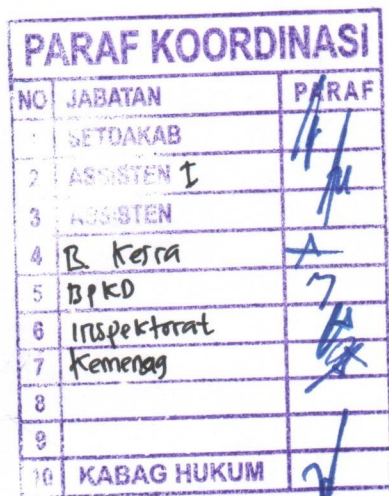 PARAF KOORDINASI
NO JABATAN PARAF
1 SETDAKAB
2 ASSISTEN I
3 ASSISTEN
4 B. Kesra
5 BPKD
6 Inspektorat
7 Kemenag
8
9
10 KABAG HUKUM